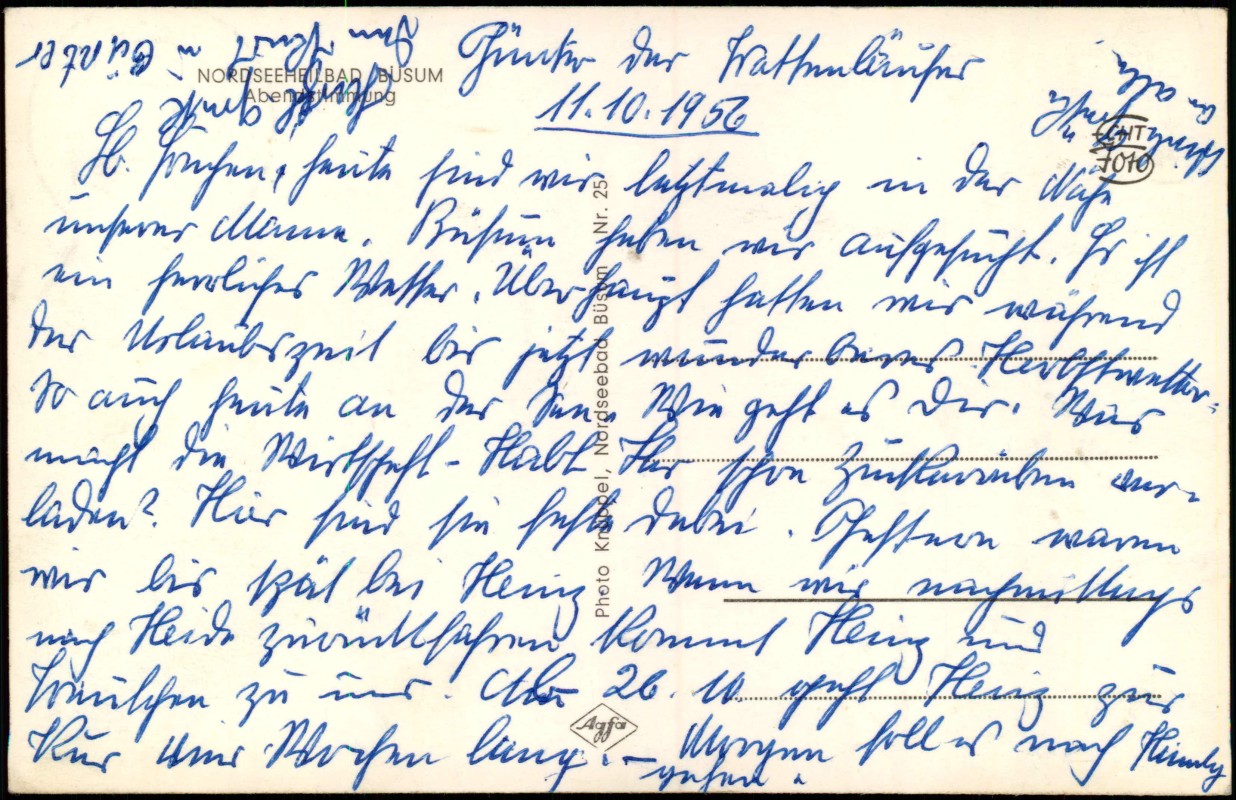 Günter der Wattenläufer
NORDSEEHEILBAD BÜSUM
Abendstimmung
11.10.1956
ECHT
FOTO
heute sind wir letztmalig in der Nähe
unserer Mama. Büsum haben wir aufgesucht. Es ist
ein herrliches Wetter. Überhaupt hatten wir während
der Urlaubszeit bis jetzt wunderbares Herbstwetter.
So auch heute an der See. Wie geht es Dir. Was
macht die Wirtschaft - Habt Ihr schon Zuckerrüben ver-
laden? Hier sind sie feste dabei. Gestern waren
wir bis spät bei Heinz Wenn wir nachmittags
nach Heide zurückfahren kommt Heinz und
zu uns. Am 26. 10 geht Heinz zur
Kur vier Wochen lang. - Morgen soll es nach
gehen.
u Günter
an alle
Photo Knüppel, Nordseebad Büsum Nr. 25
Agfa